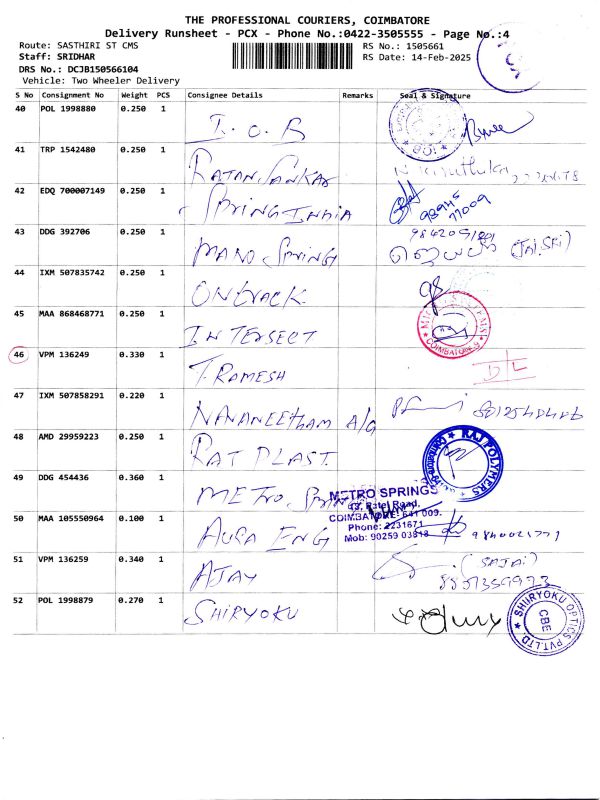 THE PROFESSIONAL COURIERS, COIMBATORE
Delivery Runsheet - PCX - Phone No.:0422-3505555 - Page No.:4
Route: SASTHIRI ST CMS
RS No.: 1505661
Staff: SRIDHAR
RS Date: 14-Feb-2025
DRS No.: DCJB150566104
Vehicle: Two Wheeler Delivery
S No Consignment No Weight PCS Consignee Details Remarks Seal & Signature
40 POL 1998880 0.250 1 I.O.B
41 TRP 1542480 0.250 1 RATAN SANKAR
42 EDQ 700007149 0.250 1 SPRING INDIA
43 DDG 392706 0.250 1 MANO SPRING (JAI.SRI)
44 IXM 507835742 0.250 1 ONTRACK
45 MAA 868468771 0.250 1 INTERSECT
46 VPM 136249 0.330 1 T.RAMESH D/L
47 IXM 507858291 0.220 1 NAVANEETHAM A/G
48 AMD 29959223 0.250 1 RAT PLAST RAJ POLYMERS
49 DDG 454436 0.360 1 METRO. METRO SPRINGS
Patel Road,
COIMBATORE-641 009.
Phone: 2231671
50 MAA 105550964 0.100 1 AURA ENG Mob: 90259 03818
51 VPM 136259 0.340 1 AJAY
52 POL 1998879 0.270 1 SHIRYOKU SHIRYOKU OPTICS PVT.LTD. CBE